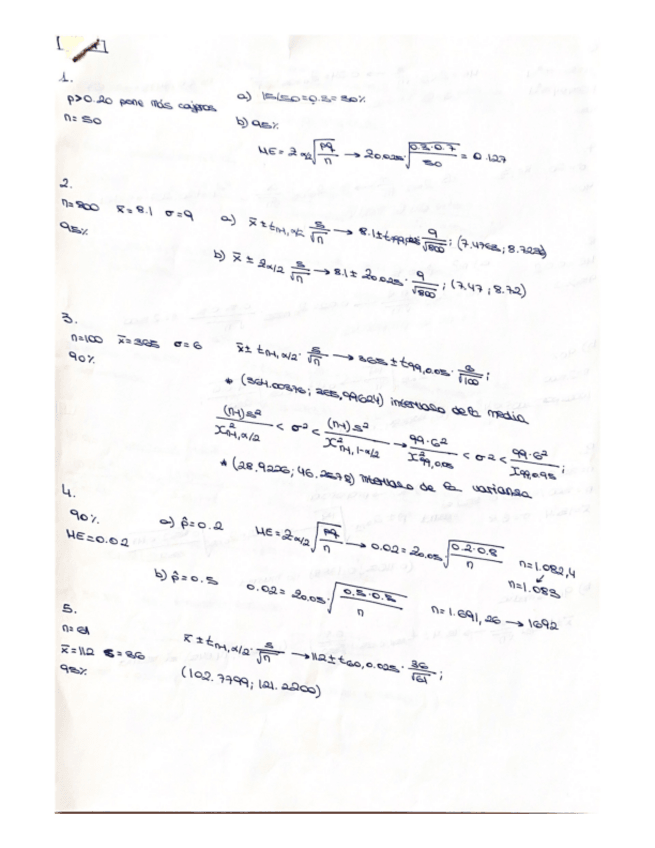 1.
p>0.20 pone más cajeros
n=50
a) 15/50=0.3=30%
b) 95%
ME = Z α/2 √(pq/n) → Z0.025 √(0.3·0.7/50) = 0.127
2.
n=800 x̄=8.1 σ=9
95%
a) x̄ ± t n-1, α/2 · s/√n → 8.1 ± t 799,025 9/√800 ; (7.4763; 8.7236)
b) x̄ ± Z α/2 s/√n → 8.1 ± Z0.025 · 9/√800 ; (7.47; 8.72)
3.
n=100 x̄=365 σ=6
90%
x̄ ± t n-1, α/2 · s/√n → 365 ± t 99,0.05 · 6/√100 ;
* (364.00376; 365,99624) intervalo de la media
(n-1)s²/X² n-1, α/2 < σ² < (n-1)s²/X² n-1, 1-α/2 → 99·6²/X² 99,0.05 < σ² < 99·6²/X 99,0.95 ;
* (28.9226; 46.2578) intervalo de la varianza
4.
90%
ME=0.02
a) p̂=0.2 ME = Z α/2 √(pq/n) → 0.02 = Z0.05 √(0.2·0.8/n) n=1.082,4
n=1.083
b) p̂=0.5 0.02 = Z0.05 · √(0.5·0.5/n) n=1.691,26 → 1692
5.
n=61
x̄=112 s=36
95%
x̄ ± t n-1, α/2 · s/√n → 112 ± t 60,0.025 · 36/√61 ;
(102.7799; 121.2200)